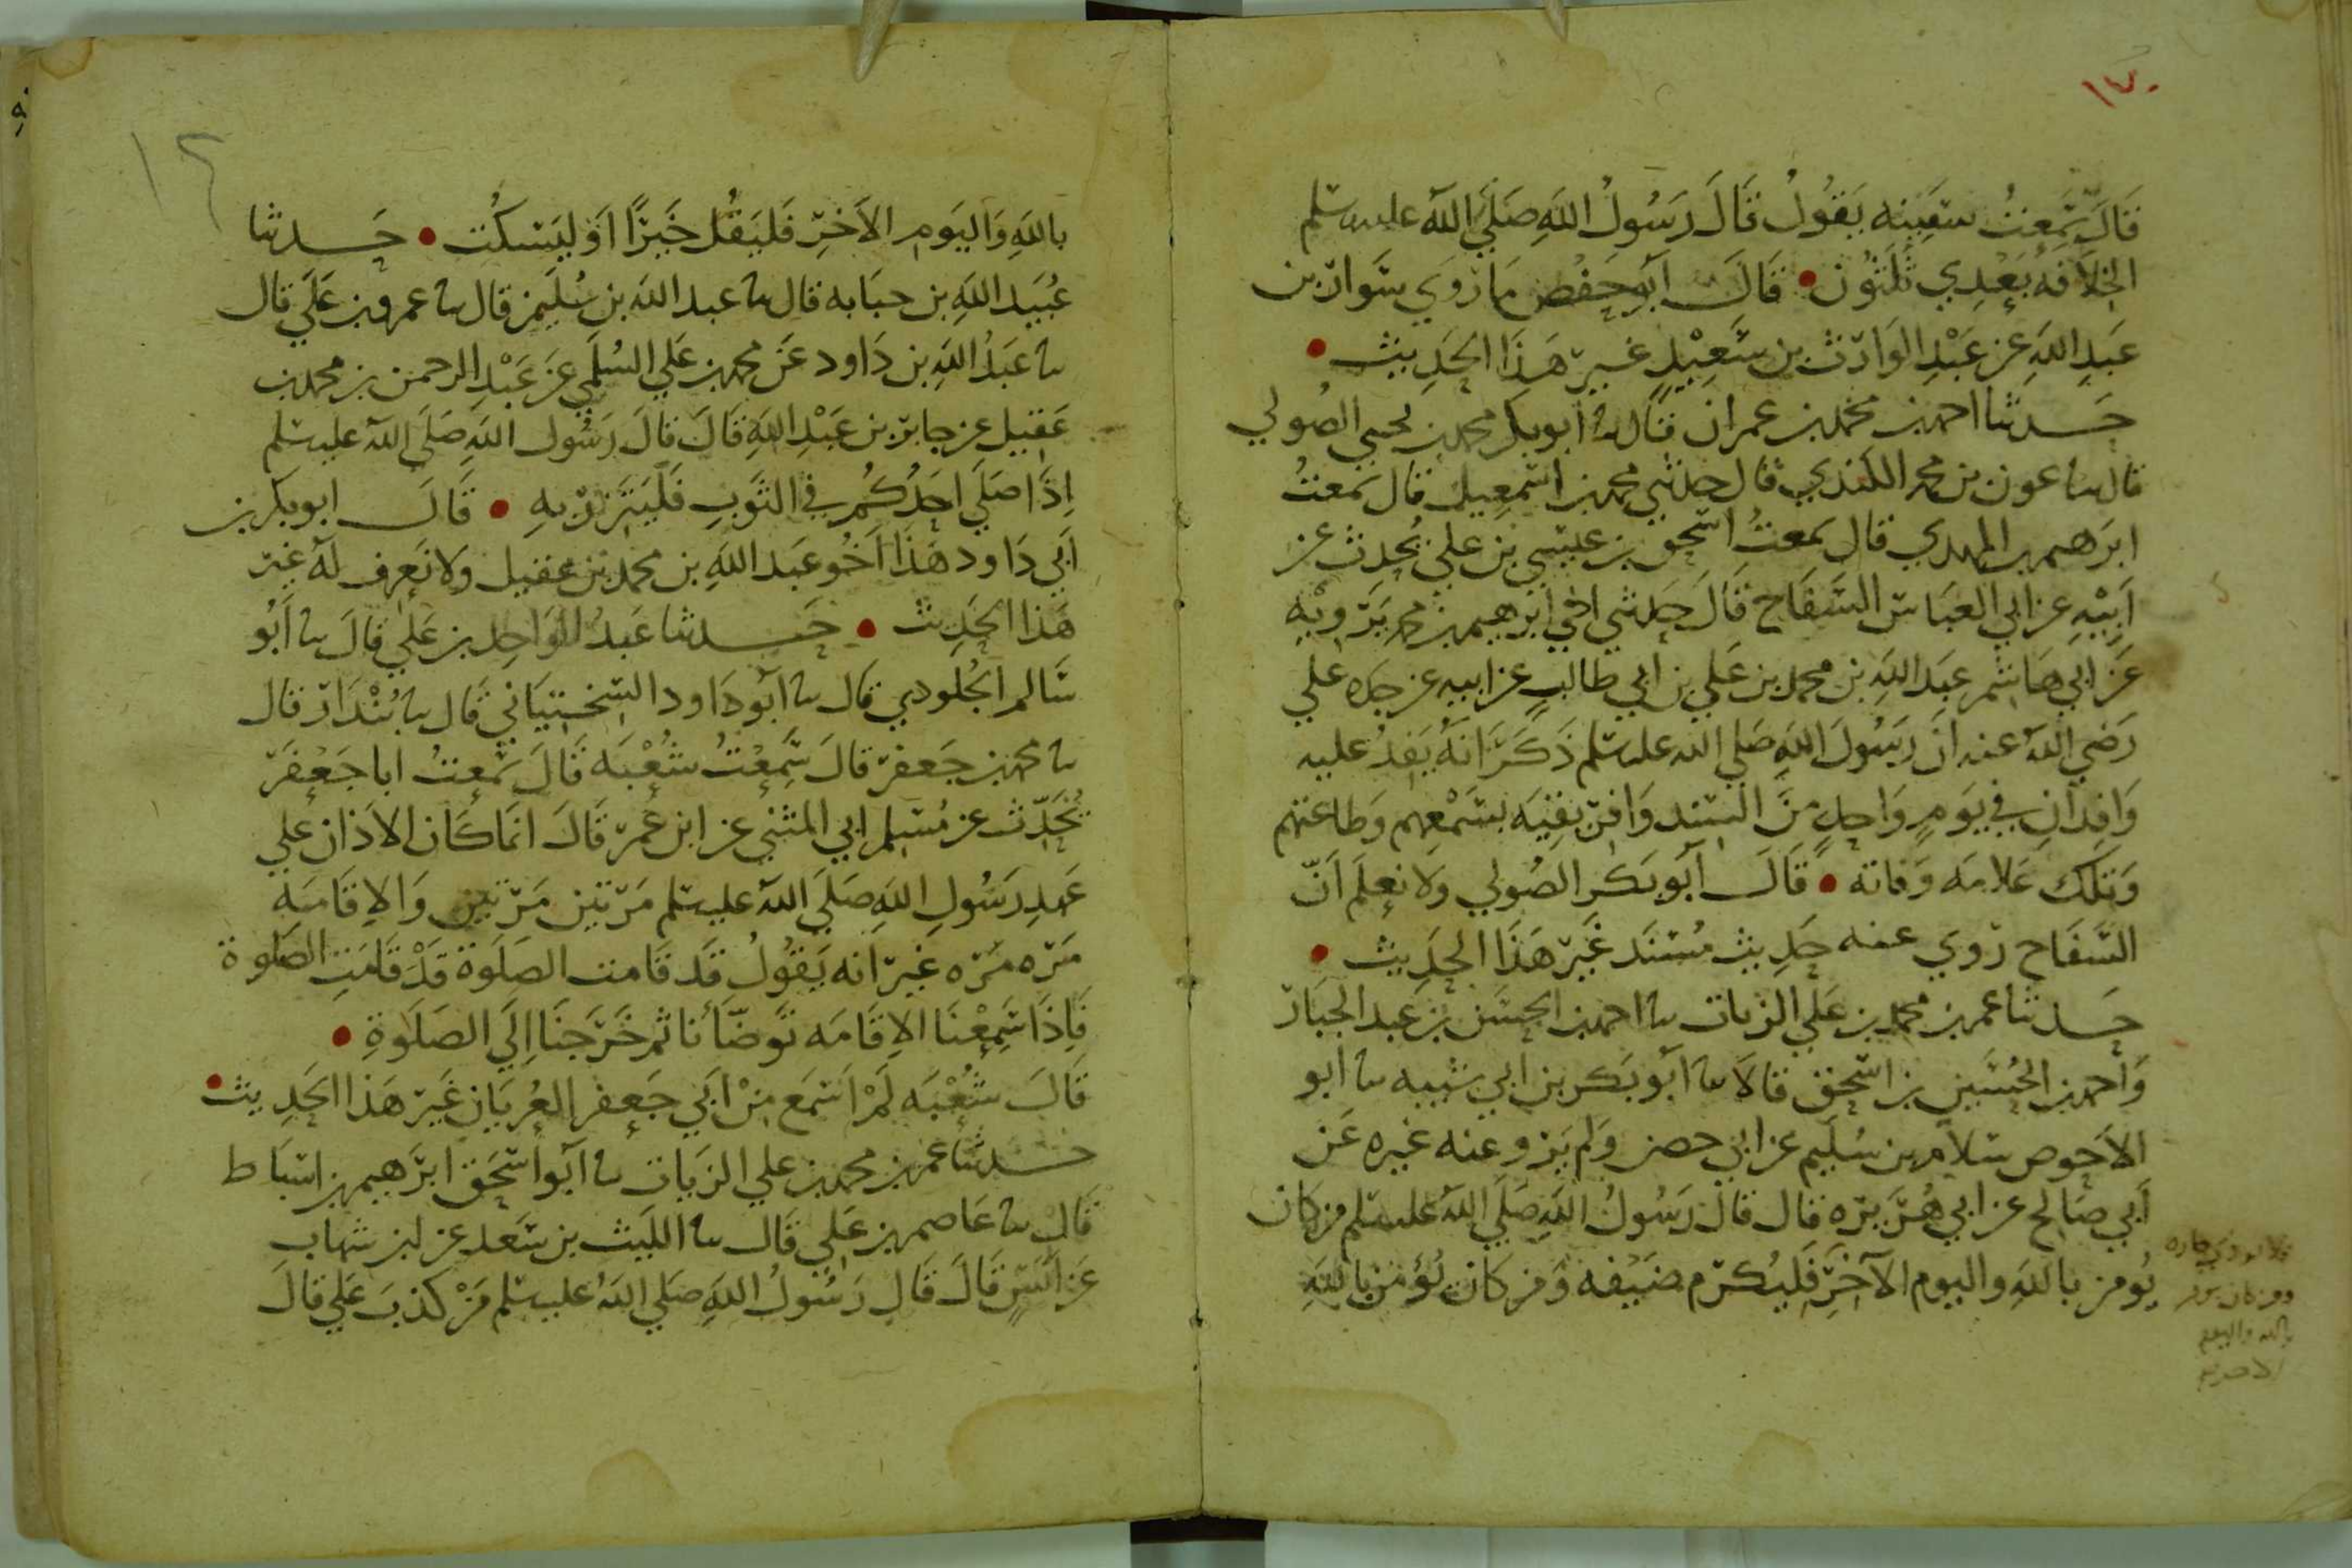 ١٣٠
قَالَ سَمِعتُ سفِينه يَقُولُ قَالَ رَسُولُ اللهِ صَلَي اللهُ عليه وسلم
الخِلاَفهُ بَعْدِي ثَلثُون • قَالَ أبو حَفْص ما رَوَي سَوار بن
عَبدِ اللهِ عن عَبْدِ الوَارث بن سَعِيْدٍ غير هَذَا الحَدِيث •
حَدثنا احمد بن محمد بن عمران قال نا ابو بكر محمد بن يحيي الصُولي
قال نا عون بن محمد الكندي قال حدثني محمد بن اسمعيل قال سَمعتُ
ابرَهيم بن المهدي قال سَمعتُ اسحق بن عيسي بن علي يُحدث عن
اَبِيْهِ عن ابي العَبَاس السَفَاح قَالَ حَدثني اخي ابرهيم بن محمد يَرويْه
عَن ابي هَاشم عَبد اللهِ بن محمد بن عَلي بن ابي طالب عن ابيه عن جده علي
رَضي اللهُ عنه انَ رَسُولَ اللهِ صَلي الله عليه وسلم ذَكَرَ انهُ يَفِدُ عليه
وَافِدَانِ في يَومٍ وَاحِدٍ منَ السند وَافريقيَه بسَمْعهم وَطَاعتهم
وَتلك عَلامَه وَفاته • قَالَ أبو بَكر الصُولي وَلا نعلم اَنّ
السَفَاح رَوي عنه حَدِيث مُسْنَد غَير هَذَا الحَدِيث •
حَدثنا عمر بن محمد بن عَلي الزيات نا احمد بن الحسَن بن عبد الجبَار
وَاحمد بن الحُسَين بن اسحق قالاَ نا ابو بَكر بن ابي شيبه نا ابو
الاحوص سَلام بن سُليم عن ابي حصين وَلم يَرو عنه غيره عَن
أبي صَالح عن ابي هُرَيره قال قالَ رَسُولُ اللهِ صَلَي اللهُ عليه وسلم من كان
يُومن باللهِ واليوم الآخر فَليُكرم ضيفه وَمن كَان يُؤمن باللهِ
فلا يوذي جاره
ومن كان يومن
بالله واليوم
١٢
باللهِ وَاليَومِ الاَخِرِ فَليَقُل خَيرًا اَو ليَسكُت • حَدثنا
عُبَيد اللهِ بن حبَابه قال نا عبد الله بن سُليمن قال نا عمرو بن عَلي قال
نا عَبدُ اللهِ بن دَاود عَن محمد بن عَلي السُلَمي عَن عَبْد الرحمن بن محمد بن
عَقيل عن جابر بن عَبْدِ اللهِ قَالَ قالَ رَسُول اللهِ صَلَى اللهُ عليه وسلم
اِذَا صَلَي اَحَدُكُم في الثَوبِ فَليَتَزر بِهِ • قَالَ ابو بكر بن
اَبي دَاود هَذا اَخُو عَبد اللهِ بن محمد بن عقيل وَلا نَعرف له غير
هَذا الحَدِيث • حَدثنا عَبدُ الوَاحِد بن عَلي قَالَ نا أبو
سَالم الجُلودي قال نا أبو دَاود السختيَاني قَال نا بُنْدَار قال
نا محمد بن جَعفر قالَ سَمِعْتُ شُعْبَه قَالَ سَمعتُ ابا جَعْفَر
يُحَدّث عن مُسْلم ابي المثني عن ابن عُمَر قَالَ انَما كَان الاَذان علي
عَهدِ رَسُولِ اللهِ صَلَي اللهُ عليه وسلم مَرّتين مَرّتين وَالاِقَامَه
مَرّه مَرّه غَيرَ انه يَقُولُ قَد قَامت الصَلَوة قَدْ قَامَتِ الصَلَوة
فَاِذَا سَمِعْنَا الاِقَامَه تَوضّأنا ثم خَرَجنَا اِلَي الصَلَوةِ •
قَالَ شُعْبَه لَمْ اَسْمَع مِنْ اَبي جَعفر العُريَان غَيرَ هَذا الحَدِيث •
حَدثنا عُمر بن محمد بن علي الزيَات نا أبو اسْحَق ابرَهيم بن اسبَاط
قَال نا عَاصم بن عَلي قَال نا الليث بن سَعد عن ابن شهاب
عَن اَنَسٍ قَالَ قَال رَسُولُ اللهِ صَلي اللهُ عليه وسلم مَنْ كذبَ عَلي قالَ